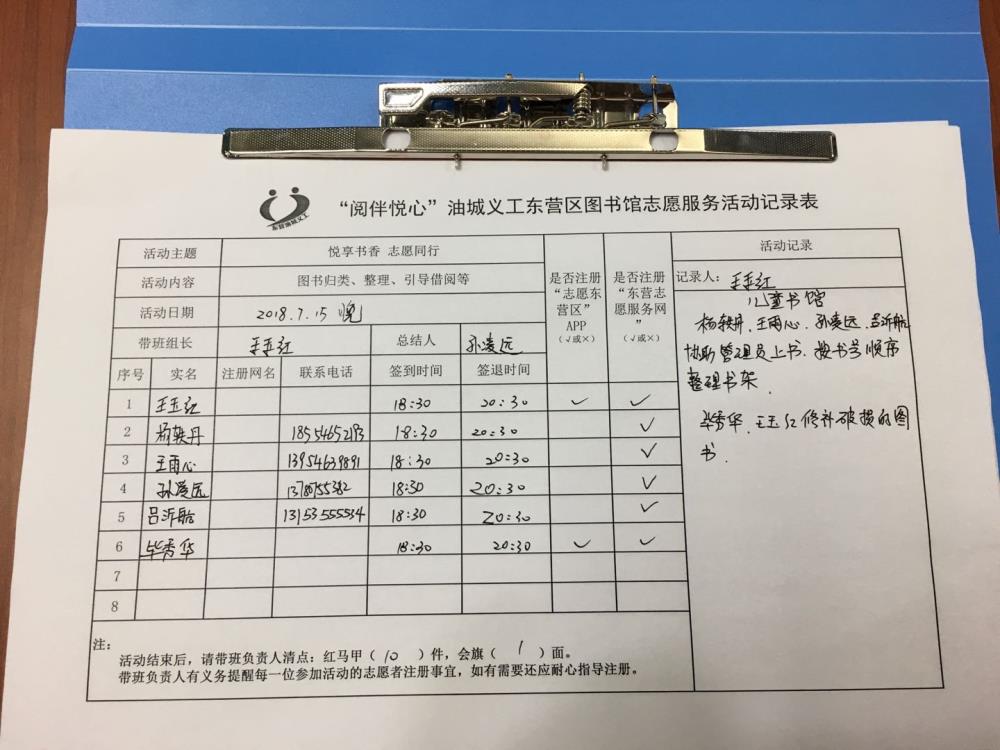 东营油城义工
“阅伴悦心”油城义工东营区图书馆志愿服务活动记录表
活动主题 悦享书香 志愿同行 是否注册“志愿东营区”APP(√或×) 是否注册“东营志愿服务网”(√或×) 活动记录
活动内容 图书归类、整理、引导借阅等
活动日期 2018.7.15 晚
带班组长 王玉红 总结人 孙凌远
序号 实名 注册网名 联系电话 签到时间 签退时间
1 王玉红 18:30 20:30 ✓ ✓
2 杨轶丹 18:30 20:30 ✓
3 王雨心 13954639891 18:30 20:30 ✓
4 孙凌远 18:30 20:30 ✓
5 吕沂舱 13153555534 18:30 20:30 ✓
6 毕秀华 18:30 20:30 ✓ ✓
7
8
记录人：王玉红
儿童书馆
杨轶丹、王雨心、孙凌远、吕沂舱
协助管理员上书、按书号顺序
整理书架
毕秀华、王玉红修补破损的图
书.
注：
活动结束后，请带班负责人清点：红马甲（10）件，会旗（1）面。
带班负责人有义务提醒每一位参加活动的志愿者注册事宜，如有需要还应耐心指导注册。